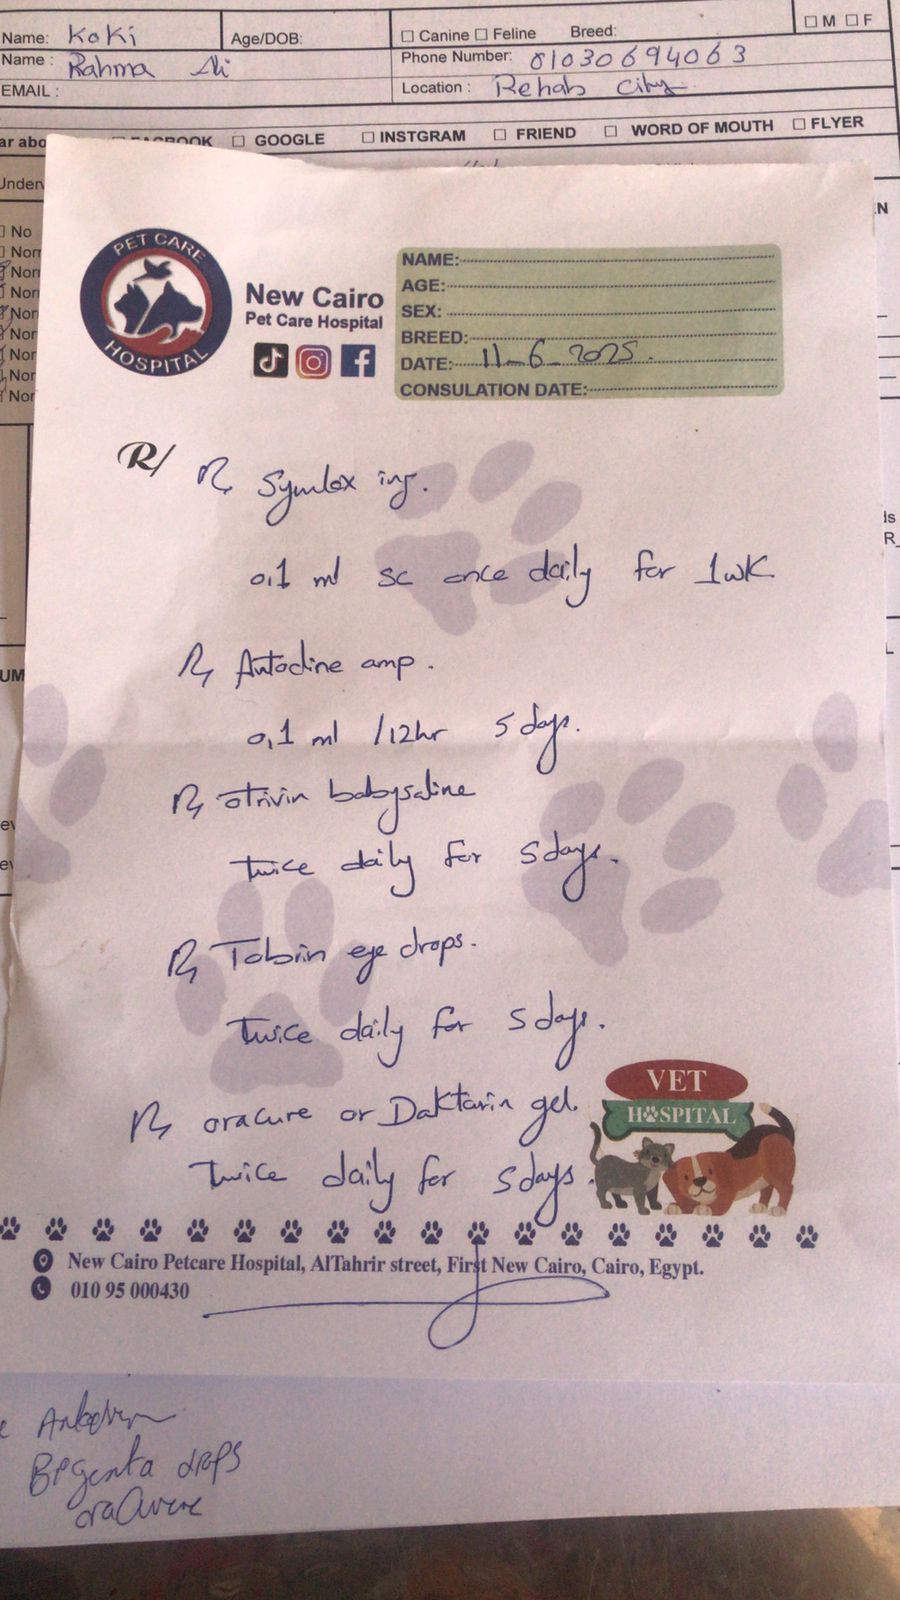 Name: Koki Age/DOB: ☐ Canine ☐ Feline Breed: ☐ M ☐ F
Name : Rahma Ali Phone Number: 01030694063
EMAIL : Location : Rehab City
ar abo FACBOOK ☐ GOOGLE ☐ INSTGRAM ☐ FRIEND ☐ WORD OF MOUTH ☐ FLYER
Underv
☐ No
Norr
Norr
Norr
Nor
Nor
Nor
Nor
Nor
PET CARE
HOSPITAL
New Cairo
Pet Care Hospital
NAME:
AGE:
SEX:
BREED:
DATE: 11-6-2025.
CONSULATION DATE:
R/ Rx Symlox inj.
0,1 ml sc once daily for 1wk
Rx Antodine amp.
0,1 ml /12hr 5 days.
Rx otrivin babysaline
twice daily for 5 days.
Rx Tobrin eye drops.
Twice daily for 5 days.
Rx oracure or Daktarin gel.
Twice daily for 5 days.
VET
HOSPITAL
New Cairo Petcare Hospital, AlTahrir street, First New Cairo, Cairo, Egypt.
010 95 000430
drops
oracure